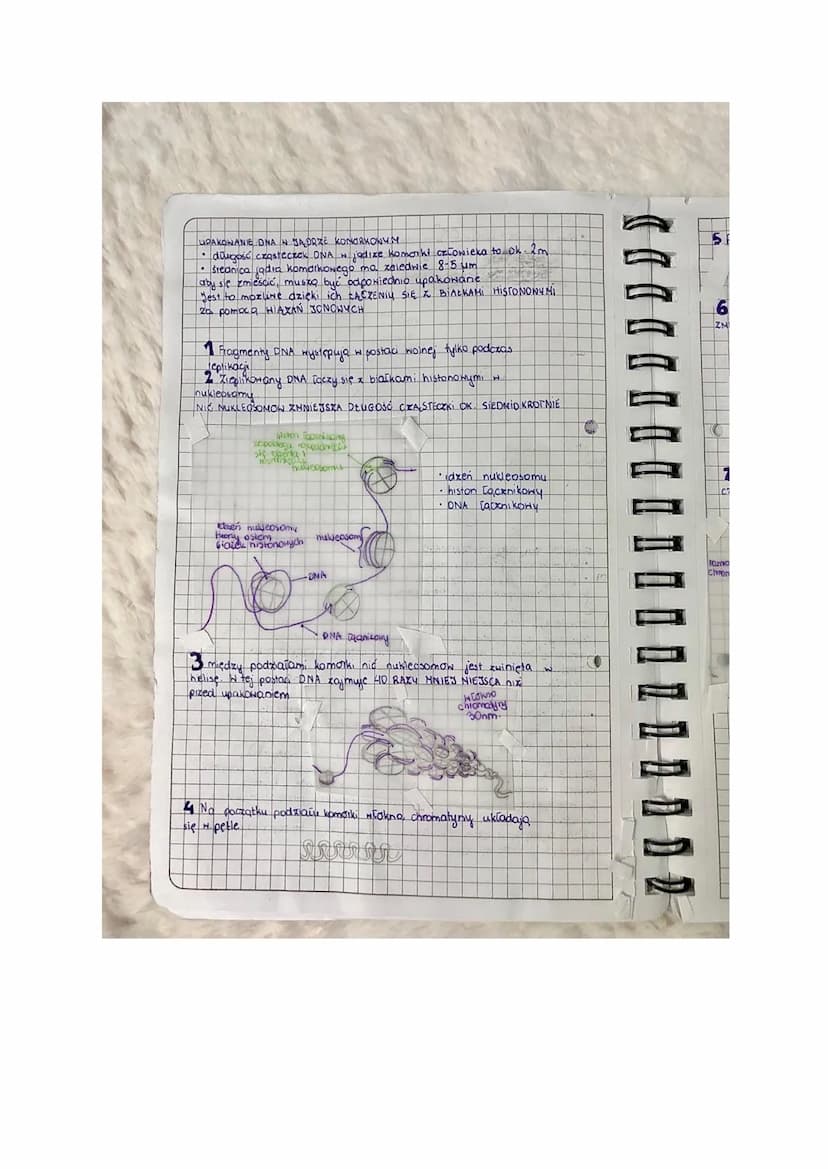 UPAKOWANIE DNA W JĄDRZE KOMÓRKOWYM
• długość cząsteczek DNA w jądrze komórki człowieka to ok. 2m
• średnica jądra komórkowego ma zaledwie 8-5 µm
aby się zmieścić, muszą być odpowiednio upakowane
Jest to możliwe dzięki ich ŁĄCZENIU SIĘ Z BIAŁKAMI HISTONOWYMI
za pomocą WIĄZAŃ JONOWYCH
1 Fragmenty DNA występują w postaci wolnej tylko podczas
replikacji
2 Zreplikowany DNA łączy się z białkami histonowymi w
nukleosomy
NIĆ NUKLEOSOMÓW ZMNIEJSZA DŁUGOŚĆ CZĄSTECZKI OK. SIEDMIOKROTNIE
• rdzeń nukleosomu
• histon łącznikowy
• DNA łącznikowy
rdzeń nukleosomu
tworzy osiem
białek histonowych
nukleosom
DNA
DNA łącznikowy
3 między podziałami komórki nić nukleosomów jest zwinięta w
helisę. W tej postaci DNA zajmuje 40 RAZY MNIEJ MIEJSCA niż
przed upakowaniem
włókno
chromatyny
30nm.
4 Na początku podziału komórki włókna chromatyny układają
się w pętle
5
6